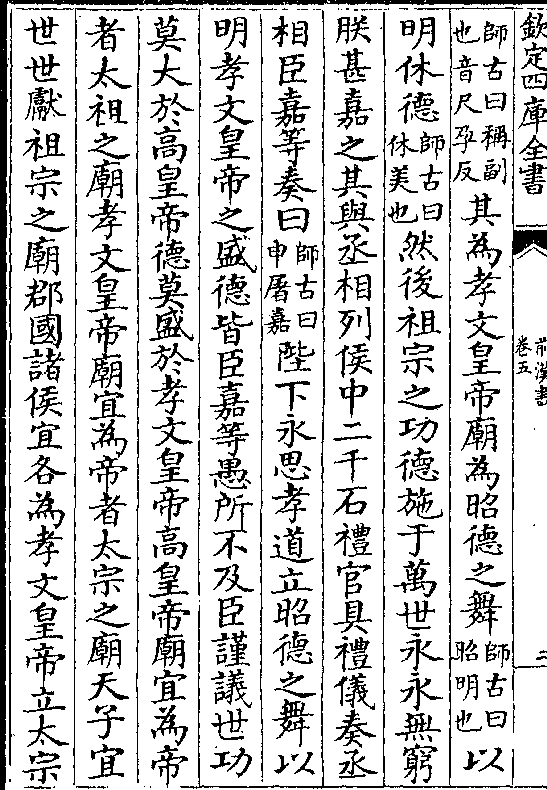 欽定四庫全書
前漢書
卷五
二
師古曰稱副
也音尺孕反
其為孝文皇帝廟為昭德之舞
師古曰
昭明也
以
明休德
師古曰
休美也
然後祖宗之功德施于萬世永永無窮
朕甚嘉之其與丞相列侯中二千石禮官具禮儀奏丞
相臣嘉等奏曰
師古曰
申屠嘉
陛下永思孝道立昭德之舞以
明孝文皇帝之盛德皆臣嘉等愚所不及臣謹議世功
莫大於高皇帝德莫盛於孝文皇帝高皇帝廟宜為帝
者太祖之廟孝文皇帝廟宜為帝者太宗之廟天子宜
世世獻祖宗之廟郡國諸侯宜各為孝文皇帝立太宗